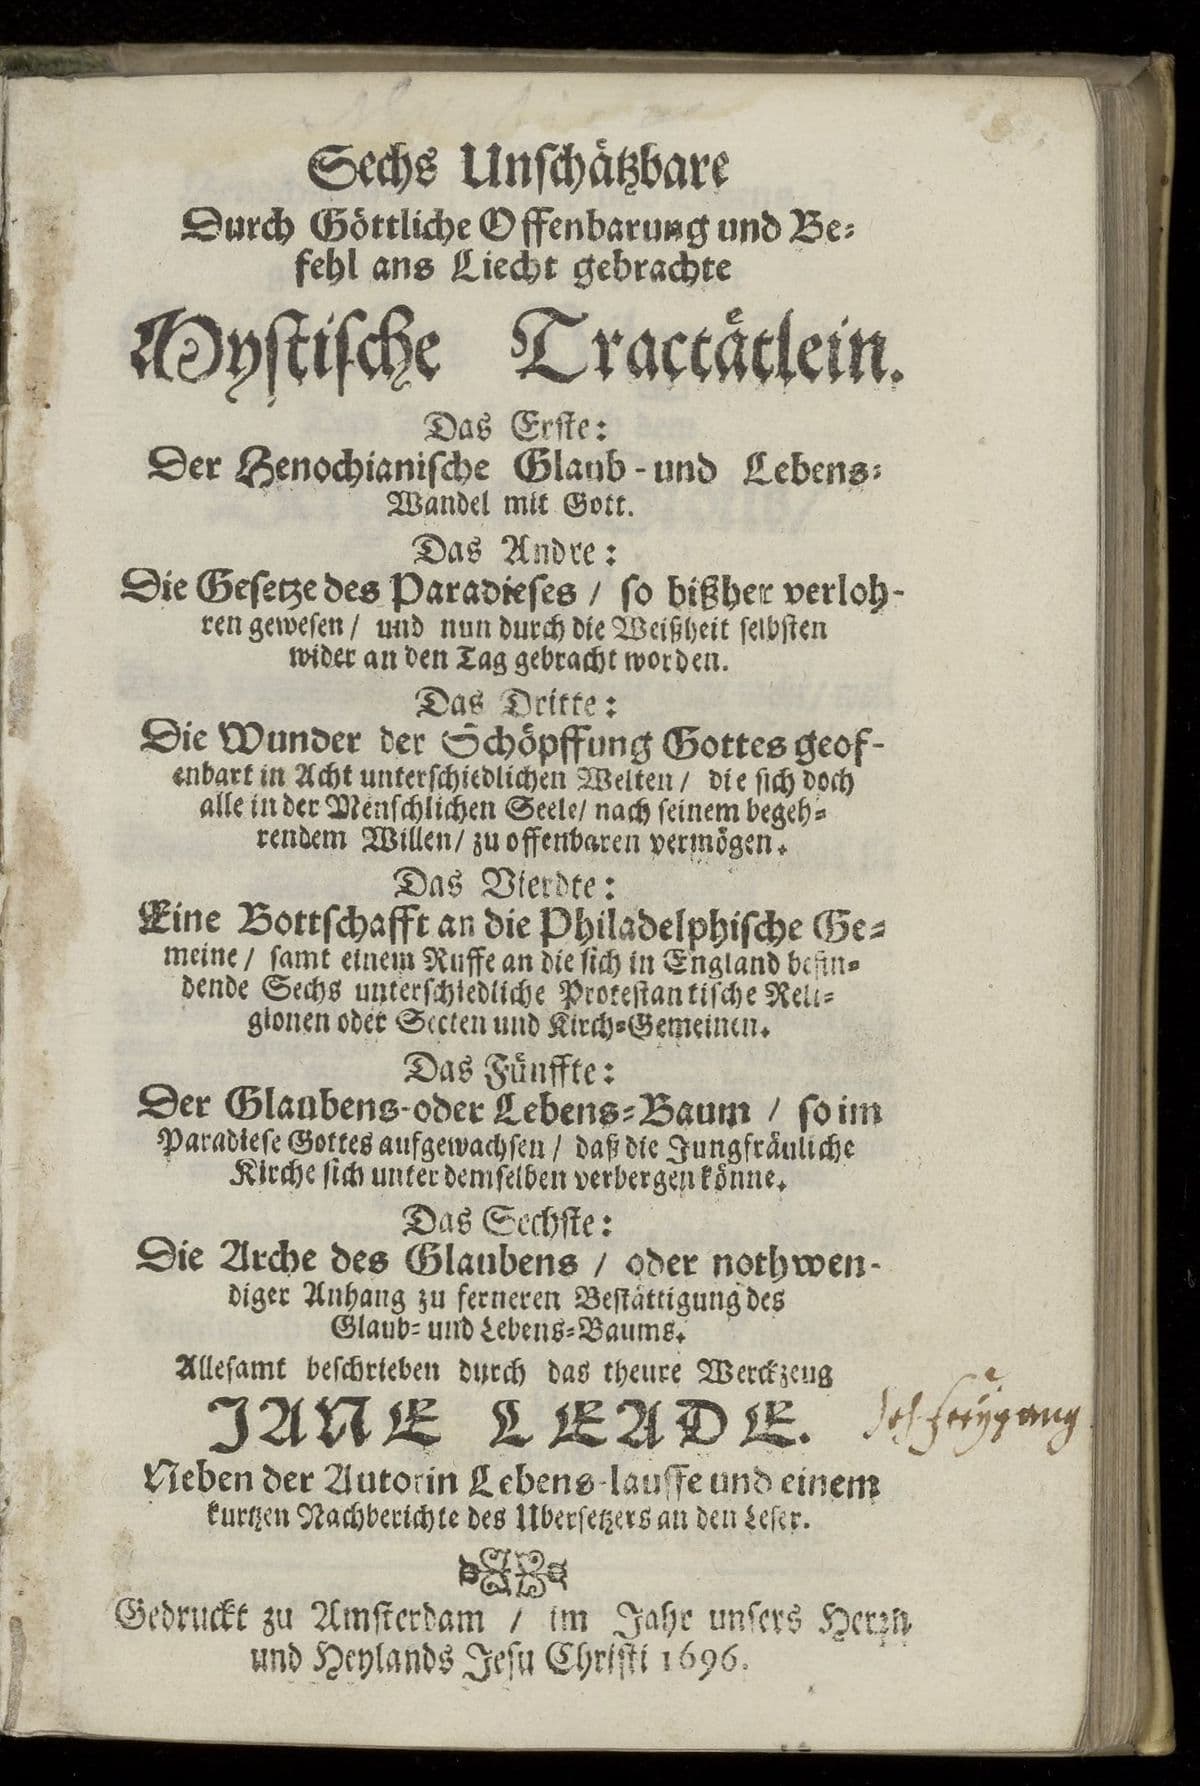 Sechs Unschätzbare
Durch Göttliche Offenbarung und Be-
fehl ans Liecht gebrachte
Mystische Tractätlein.
Das Erste:
Der Henochianische Glaub-und Lebens-
Wandel mit Gott.
Das Andre:
Die Gesetze des Paradieses / so bißher verloh-
ren gewesen / und nun durch die Weißheit selbsten
wider an den Tag gebracht worden.
Das Dritte:
Die Wunder der Schöpffung Gottes geof-
enbart in Acht unterschiedlichen Welten / die sich doch
alle in der Menschlichen Seele / nach seinem begeh-
rendem Willen / zu offenbaren vermögen.
Das Vierdte:
Eine Bottschafft an die Philadelphische Ge-
meine / samt einem Ruffe an die sich in England befin-
dende Sechs unterschiedliche Protestantische Reli-
gionen oder Secten und Kirch-Gemeinen.
Das Fünffte:
Der Glaubens-oder Lebens-Baum / so im
Paradiese Gottes aufgewachsen / daß die Jungfräuliche
Kirche sich unter demselben verbergen könne.
Das Sechste:
Die Arche des Glaubens / oder nothwen-
diger Anhang zu ferneren Bestättigung des
Glaub- und Lebens-Baums.
Allesamt beschrieben durch das theure Werckzeug
JANE LEADE.
Neben der Autorin Lebens-lauffe und einem
kurtzen Nachberichte des Ubersetzers an den Leser.
Gedruckt zu Amsterdam / im Jahr unsers Herrn
und Heylands Jesu Christi 1696.